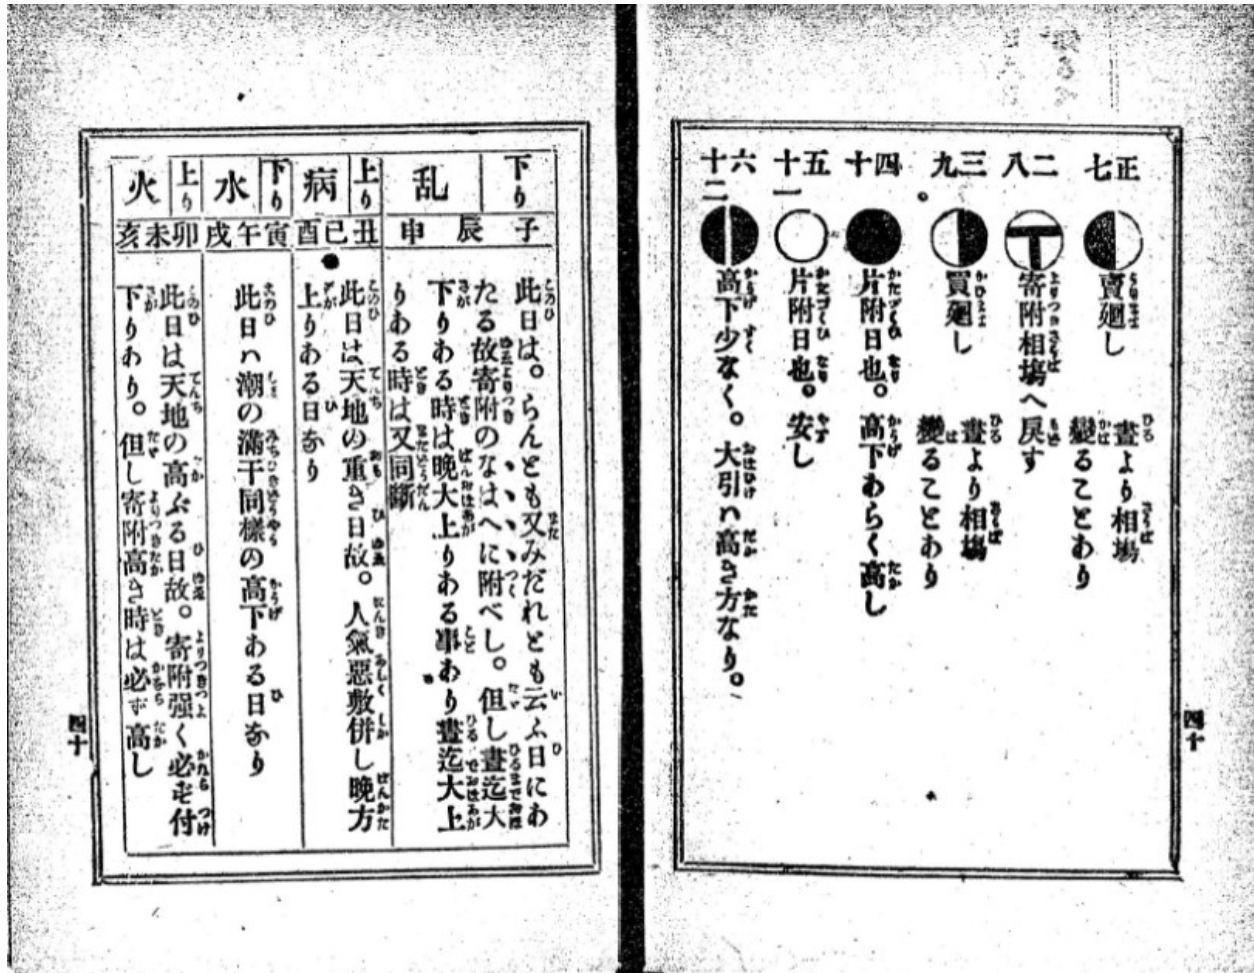 正七
賣廻し
晝より相塲
變ることあり
二八
寄附相塲へ戻す
三九
買廻し
晝より相塲
變ることあり
四十
片附日也。高下あらく高し
五十一
片附日也。安し
六十二
高下少なく。大引ハ高き方なり。
四十
下り
乱
子辰申
此日は。らんとも又みだれとも云ふ日にあ
たる故寄附のなはへに附べし。但し晝迄大
下りある時は晩大上りある事あり晝迄大上
りある時は又同斷
上り
病
丑巳酉
此日は天地の重き日故。人氣惡敷併し晩方
上りある日なり
下り
水
寅午戌
此日ハ潮の滿干同樣の高下ある日なり
上り
火
卯未亥
此日は天地の高ぶる日故。寄附强く必ず付
下りあり。但し寄附高き時は必ず高し
四十